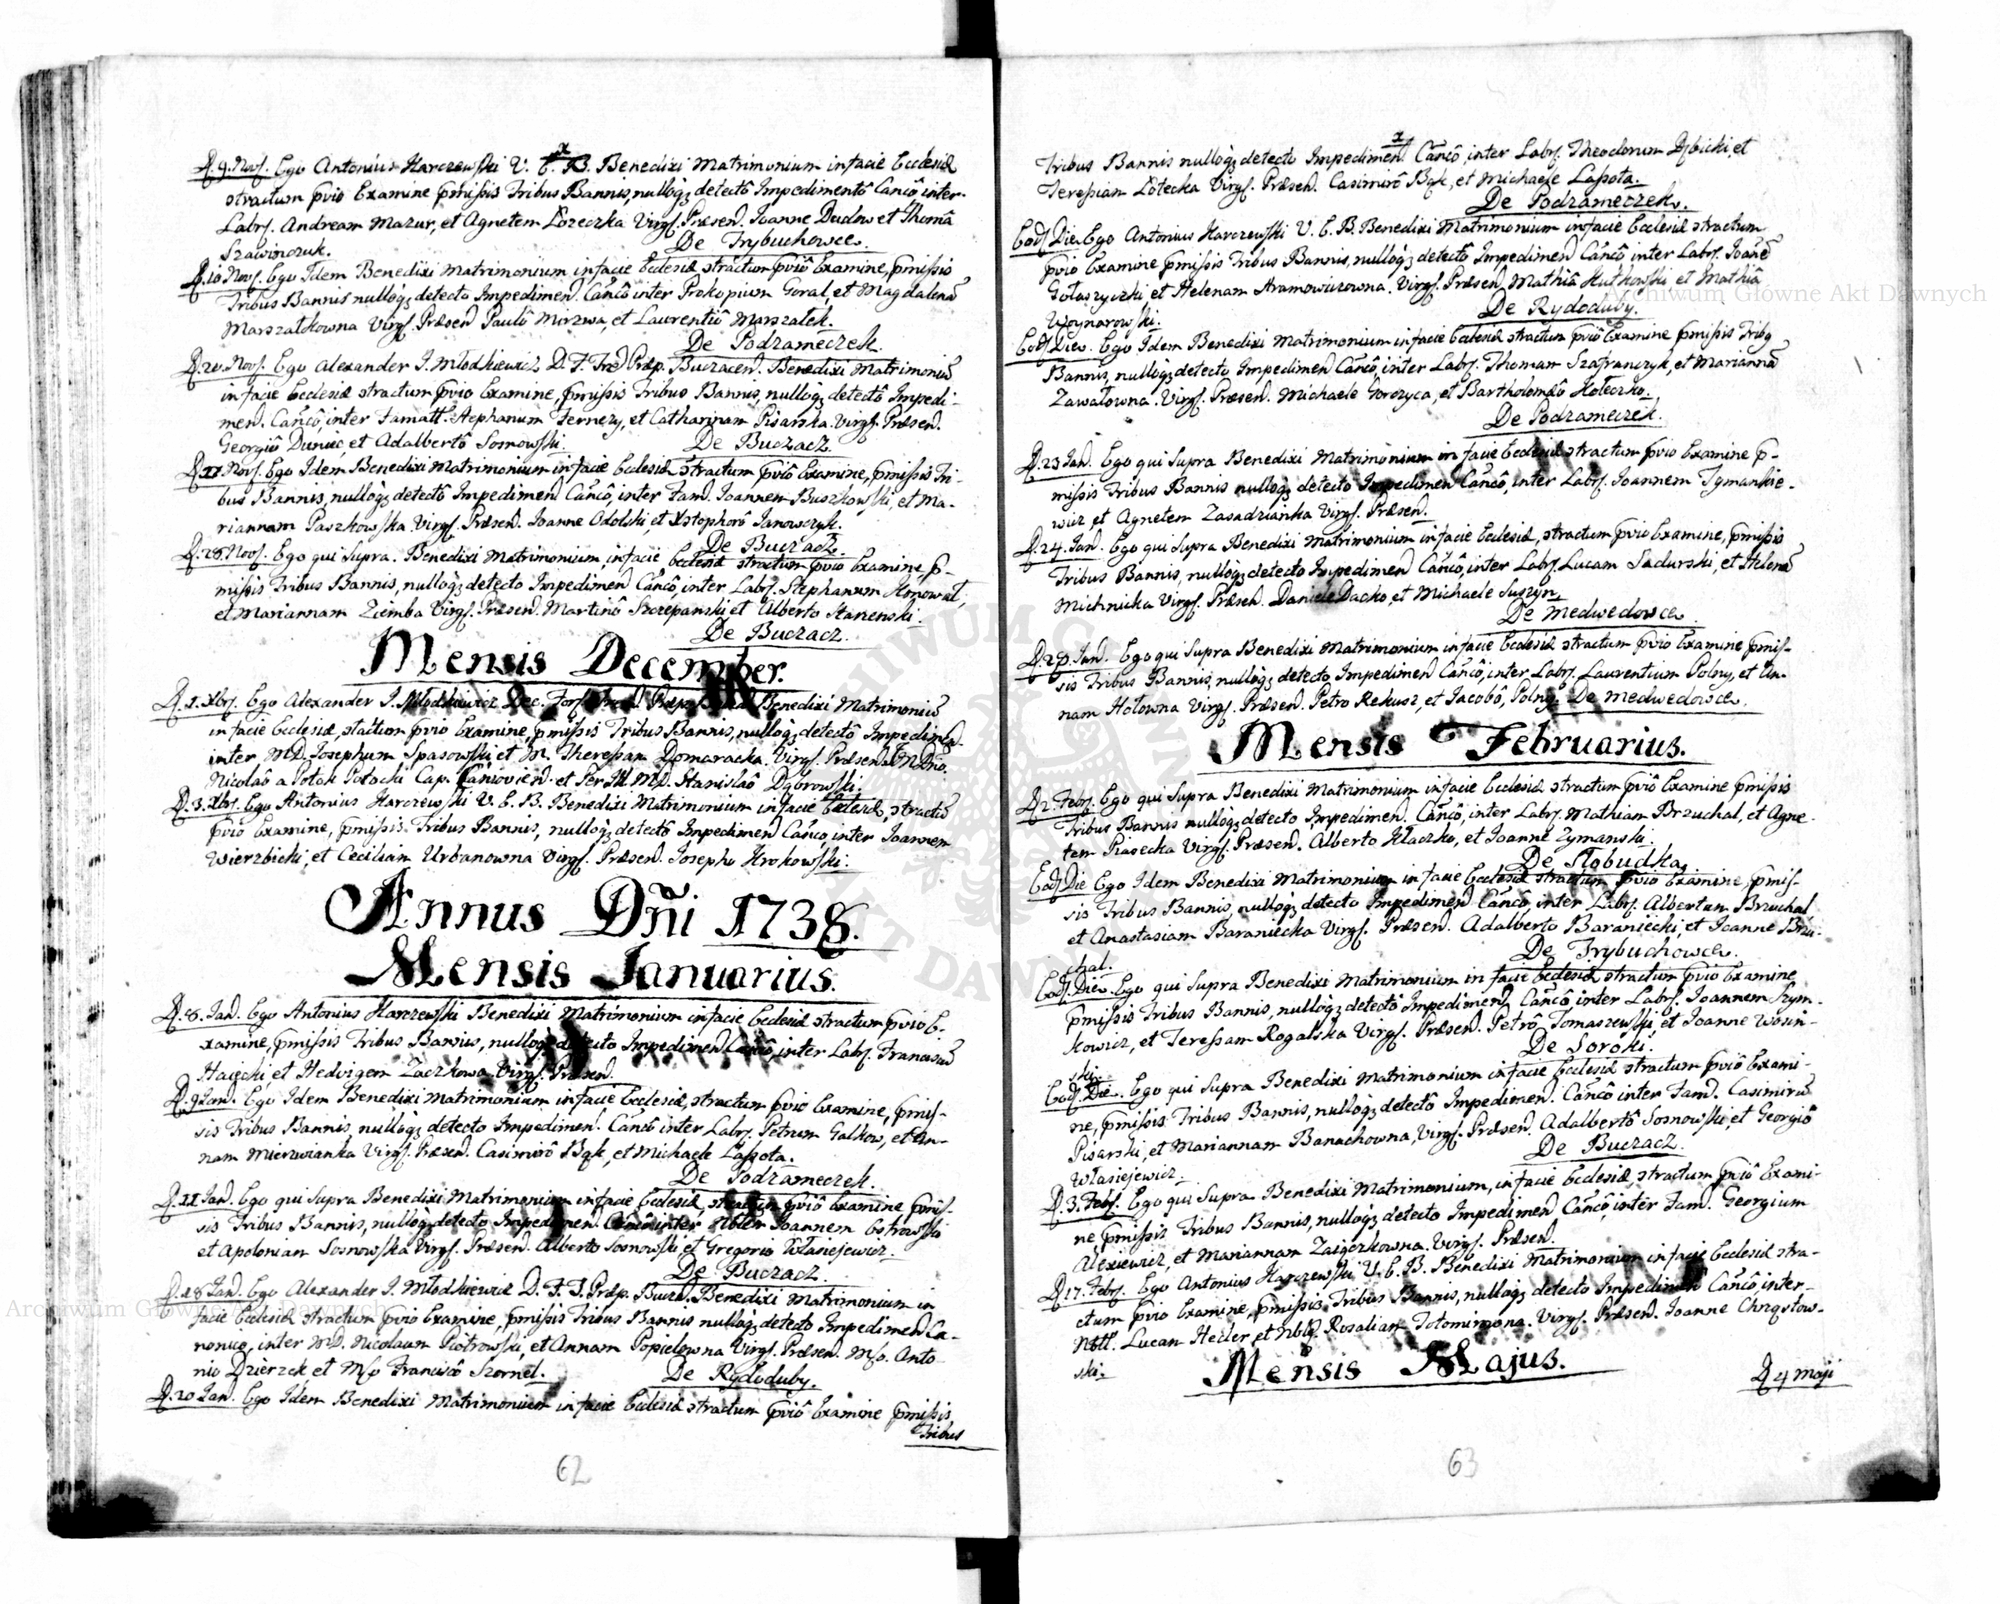 D. 9. Novs. Ego Antonius Harczewski V. C. B. Benedixi Matrimonium in facie Ecclesiæ
stractum pvio Examine pmissis Tribus Bannis, nullòq; detectô Impedimentô Cancô inter
Labrs. Andream Mazur, et Agnetem Lozeczka Virgs. Præsen. Joanne Dudow et Thoma
Szawinczuk.
De Trybuchowce.
D. 10. Novs. Ego Idem Benedixi Matrimonium in facie Ecclesiæ stractum pviô Examine, pmissis
Tribus Bannis nullòq; detecto Impedimen. Cancô inter Prokopium Goral, et Magdalenã
Marszałkowna Virgs. Præsen Paulô Mirzwa, et Laurentiô Marszałek.
De Podzameczek.
D. 20. Novs. Ego Alexander J. Młodkiewicz D. F. Præp. Buczacen. Benedixi Matrimoniũ
in facie Ecclesiæ stractum pvio Examine, pmissis Tribus Bannis, nullòq; detectô Impedi-
men. Cancô, inter Famatt. Stephanum Ternezy, et Catharinam Pisarska Virgs. Præsen.
Georgiô Duniec, et Adalbertô Sosnowski.
De Buczacz.
D. 22. Novs. Ego Idem Benedixi Matrimonium in facie Ecclesiæ stractum pviô Examine, pmissis Tri-
bus Bannis, nullòq; detectô Impedimen Cancô, inter Fam. Joannem Buszkowski, et Ma-
riannam Paszkowska Virgs. Præsen. Joanne Odolski, et Xstophorô Janowczyk.
De Buczacz.
D. 28 Novs. Ego qui Supra. Benedixi Matrimonium in facie Ecclesiæ stractum pvio Examine, p-
missis Tribus Bannis, nullòq; detecto Impedimen Cancô, inter Labrs. Stephanum Konowal,
et Mariannam Ziemba Virgs. Præsen. Martinô Szczepanski, et Alberto Staxenski.
De Buczacz.
Mensis December.
D. 1. Xbrs. Ego Alexander J. Młodkiewicz Dec. Benedixi Matrimoniũ
in facie Ecclesiæ, stactum pvio Examine, pmissis Tribus Bannis, nullòq; detectô Impedimen.
inter MD. Josephum Spasowski, et M. Theressam Domaracka. Virgs. Præsen.
Nicolaô a Potok Potocki Cap. Caniovien. et MD. Stanislaô Dąbrowski.
D. 3. Xbrs. Ego Antonius Harczewski V. C. B. Benedixi Matrimonium in facie Ecclesiæ, stractũ
pvio Examine, pmissis. Tribus Bannis, nullòq; detectô, Impedimen Canco, inter Joannem
Wierzbicki, et Ceciliam Urbanowna Virgs. Præsen. Josepho Krokowski.
Annus Dñi 1738.
Mensis Januarius.
D. 8. Jan. Ego Antonius Harczewski Benedixi Matrimonium in facie Ecclesiæ stractum, pvio E-
xamine, pmissis Tribus Bannis, nullòq; detecto Impedimen Cancô, inter Labrs. Franciscũ
Haiecki, et Hedvigem Zaczkowa Virgs. Præsen.
D. 9 Jan. Ego Idem Benedixi Matrimonium in facie Ecclesiæ, stractum pvio Examine, pmis-
sis Tribus Bannis, nullòq; detecto Impedimen. Cancô inter Labrs. Petrum Galkow, et An-
nam Mierzwianka Virgs. Præsen. Casimirô Bąk, et Michaele Lassota.
De Podzameczek.
D. 11 Jan. Ego qui Supra Benedixi Matrimonium in facie Ecclesiæ, stractum pviô Examine, pmis-
sis Tribus Bannis, nullòq; detecto Impedimen. Cancô inter Joannem Ostrowski
et Apolonian Sosnowska Virgs. Præsen. Alberto Sosnowski, et Gregorio Własiejewicz.
De Buczacz.
D. 18 Jan. Ego Alexander J. Młodkiewicz D. F. J. Præp. Bucz. Benedixi Matrimonium in
facie Ecclesiæ stractum pvio Examine, pmissis Tribus Bannis nullòq; detecto Impedimen Ca-
nonico, inter MD. Nicolaum Piotrowski, et Annam Popielowna Virgs. Præsen. Mfo. Anto-
nio Dzierzek et Mfo Franciscô Szornel.
De Rydoduby.
D. 20 Jan. Ego Idem Benedixi Matrimonium in facie Ecclesiæ stractum pviô Examine pmissis,
Tribus
62
Tribus Bannis nullòq; detecto Impedimen. Cancô, inter Labrs. Theodorum Dębicki, et
Teressam Lotecka Virgs. Præsen. Casimirô Bąk, et Michaele Lassota.
De Podzameczek.
Eods Die Ego Antonius Harczewski V. C. B. Benedixi Matrimonium in facie Ecclesiæ stractum
pvio Examine pmissis Tribus Bannis, nullòq; detectô Impedimen Cancô inter Labrs. Joanẽ
Gołaszycski et Helenam Aramowiczowna. Virgs. Præsen. Mathiâ Hutkowski et Mathiâ
Woynarowski.
De Rydoduby.
Eods Die. Ego Idem Benedixi Matrimonium in facie Ecclesiæ stractum pviô Examine pmissis Tribq
Bannis, nullòq; detecto Impedimen Cancô, inter Labrs. Thomam Szafranczyk, et Mariannã
Zawalowna. Virgs. Præsen. Michaele Gorczyca, et Bartholomæô Koteczko.
De Podzameczek.
D. 23 Jan. Ego qui Supra Benedixi Matrimonium in facie Ecclesiæ stractum pvio Examine p-
missis Tribus Bannis nullòq; detecto Impedimen Cancô, inter Labrs. Joannem Tymankie-
wicz, et Agnetem Zasadzianka Virgs. Præsen.
D. 24. Jan. Ego qui Supra Benedixi Matrimonium in facie Ecclesiæ, stractum pvio Examine, pmissis
Tribus Bannis, nullòq; detecto Impedimen Cancô, inter Labrs. Lucam Sadurski, et Helenã
Michnicka Virgs. Præsen. Daniele Dacko, et Michaele Suszyn.
De Medwedowce.
D. 29. Jan. Ego qui Supra Benedixi Matrimonium in facie Ecclesiæ stractum pvio Examine pmis-
sis Tribus Bannis, nullòq; detecto Impedimen Cancô, inter Labrs. Laurentium Polny, et An-
nam Hołowna Virgs. Præsen. Petro Rekusz, et Jacobô, Polny. De Medwedowce.
Mensis Februarius.
D. 2. Febrs. Ego qui Supra Benedixi Matrimonium in facie Ecclesiæ stractum pviô Examine pmissis
Tribus Bannis nullòq; detecto Impedimen. Cancô, inter Labrs. Mathiam Brzuchal, et Agne-
tem Piasecka Virgs. Præsen. Alberto Klaczko, et Joanne Zymanski.
De Słobudka.
Eods Die Ego Idem Benedixi Matrimonium in facie Ecclesiæ stractum pvio Examine, pmis-
sis Tribus Bannis, nullòq; detecto Impedimen Cancô, inter Labrs. Albertum Brzuchal
et Anastasiam Baraniecka Virgs. Præsen. Adalberto Baraniecki, et Joanne Brzu-
chal.
De Trybuchowce.
Eods. Die. Ego qui Supra Benedixi Matrimonium in facie Ecclesiæ stractum pvio Examine
pmissis Tribus Bannis, nullòq; detecto Impedimen Cancô inter Labrs. Joannem Szym-
kowicz, et Teressam Rogalska Virgs. Præsen. Petrô Tomaszewski et Joanne Wosin-
ski.
De Soroki.
Eods Die. Ego qui Supra Benedixi Matrimonium in facie Ecclesiæ stractum pviô Exami-
ne, pmissis Tribus Bannis, nullòq; detectô Impedimen. Cancô inter Fam. Casimirũ
Pisarski, et Mariannam Banachowna, Virgs. Præsen. Adalbertô Sosnowski, et Georgiô
Własiejewicz.
De Buczacz.
D. 3. Febrs. Ego qui Supra Benedixi Matrimonium, in facie Ecclesiæ, stractum pviô Exami-
ne pmissis Tribus Bannis, nullòq; detecto Impedimen Cancô, inter Fam. Georgium
Alexiewicz, et Mariannam Zaiączkowna. Virgs. Præsen.
D. 17. Febrs. Ego Antonius Harczewski V. C. B. Benedixi Matrimonium in facie Ecclesiæ stra-
ctum pvio Examine, pmissis Tribus Bannis, nullòq; detecto Impedimen Cancô, inter
Lucam Heiler, et Nblq. Rosaliam Totomirzona. Virgs. Præsen. Joanne Chrząstow-
ski.
Mensis Majus.
D. 4 Maji
63
Archiwum Główne Akt Dawnych
Archiwum Główne Akt Dawnych